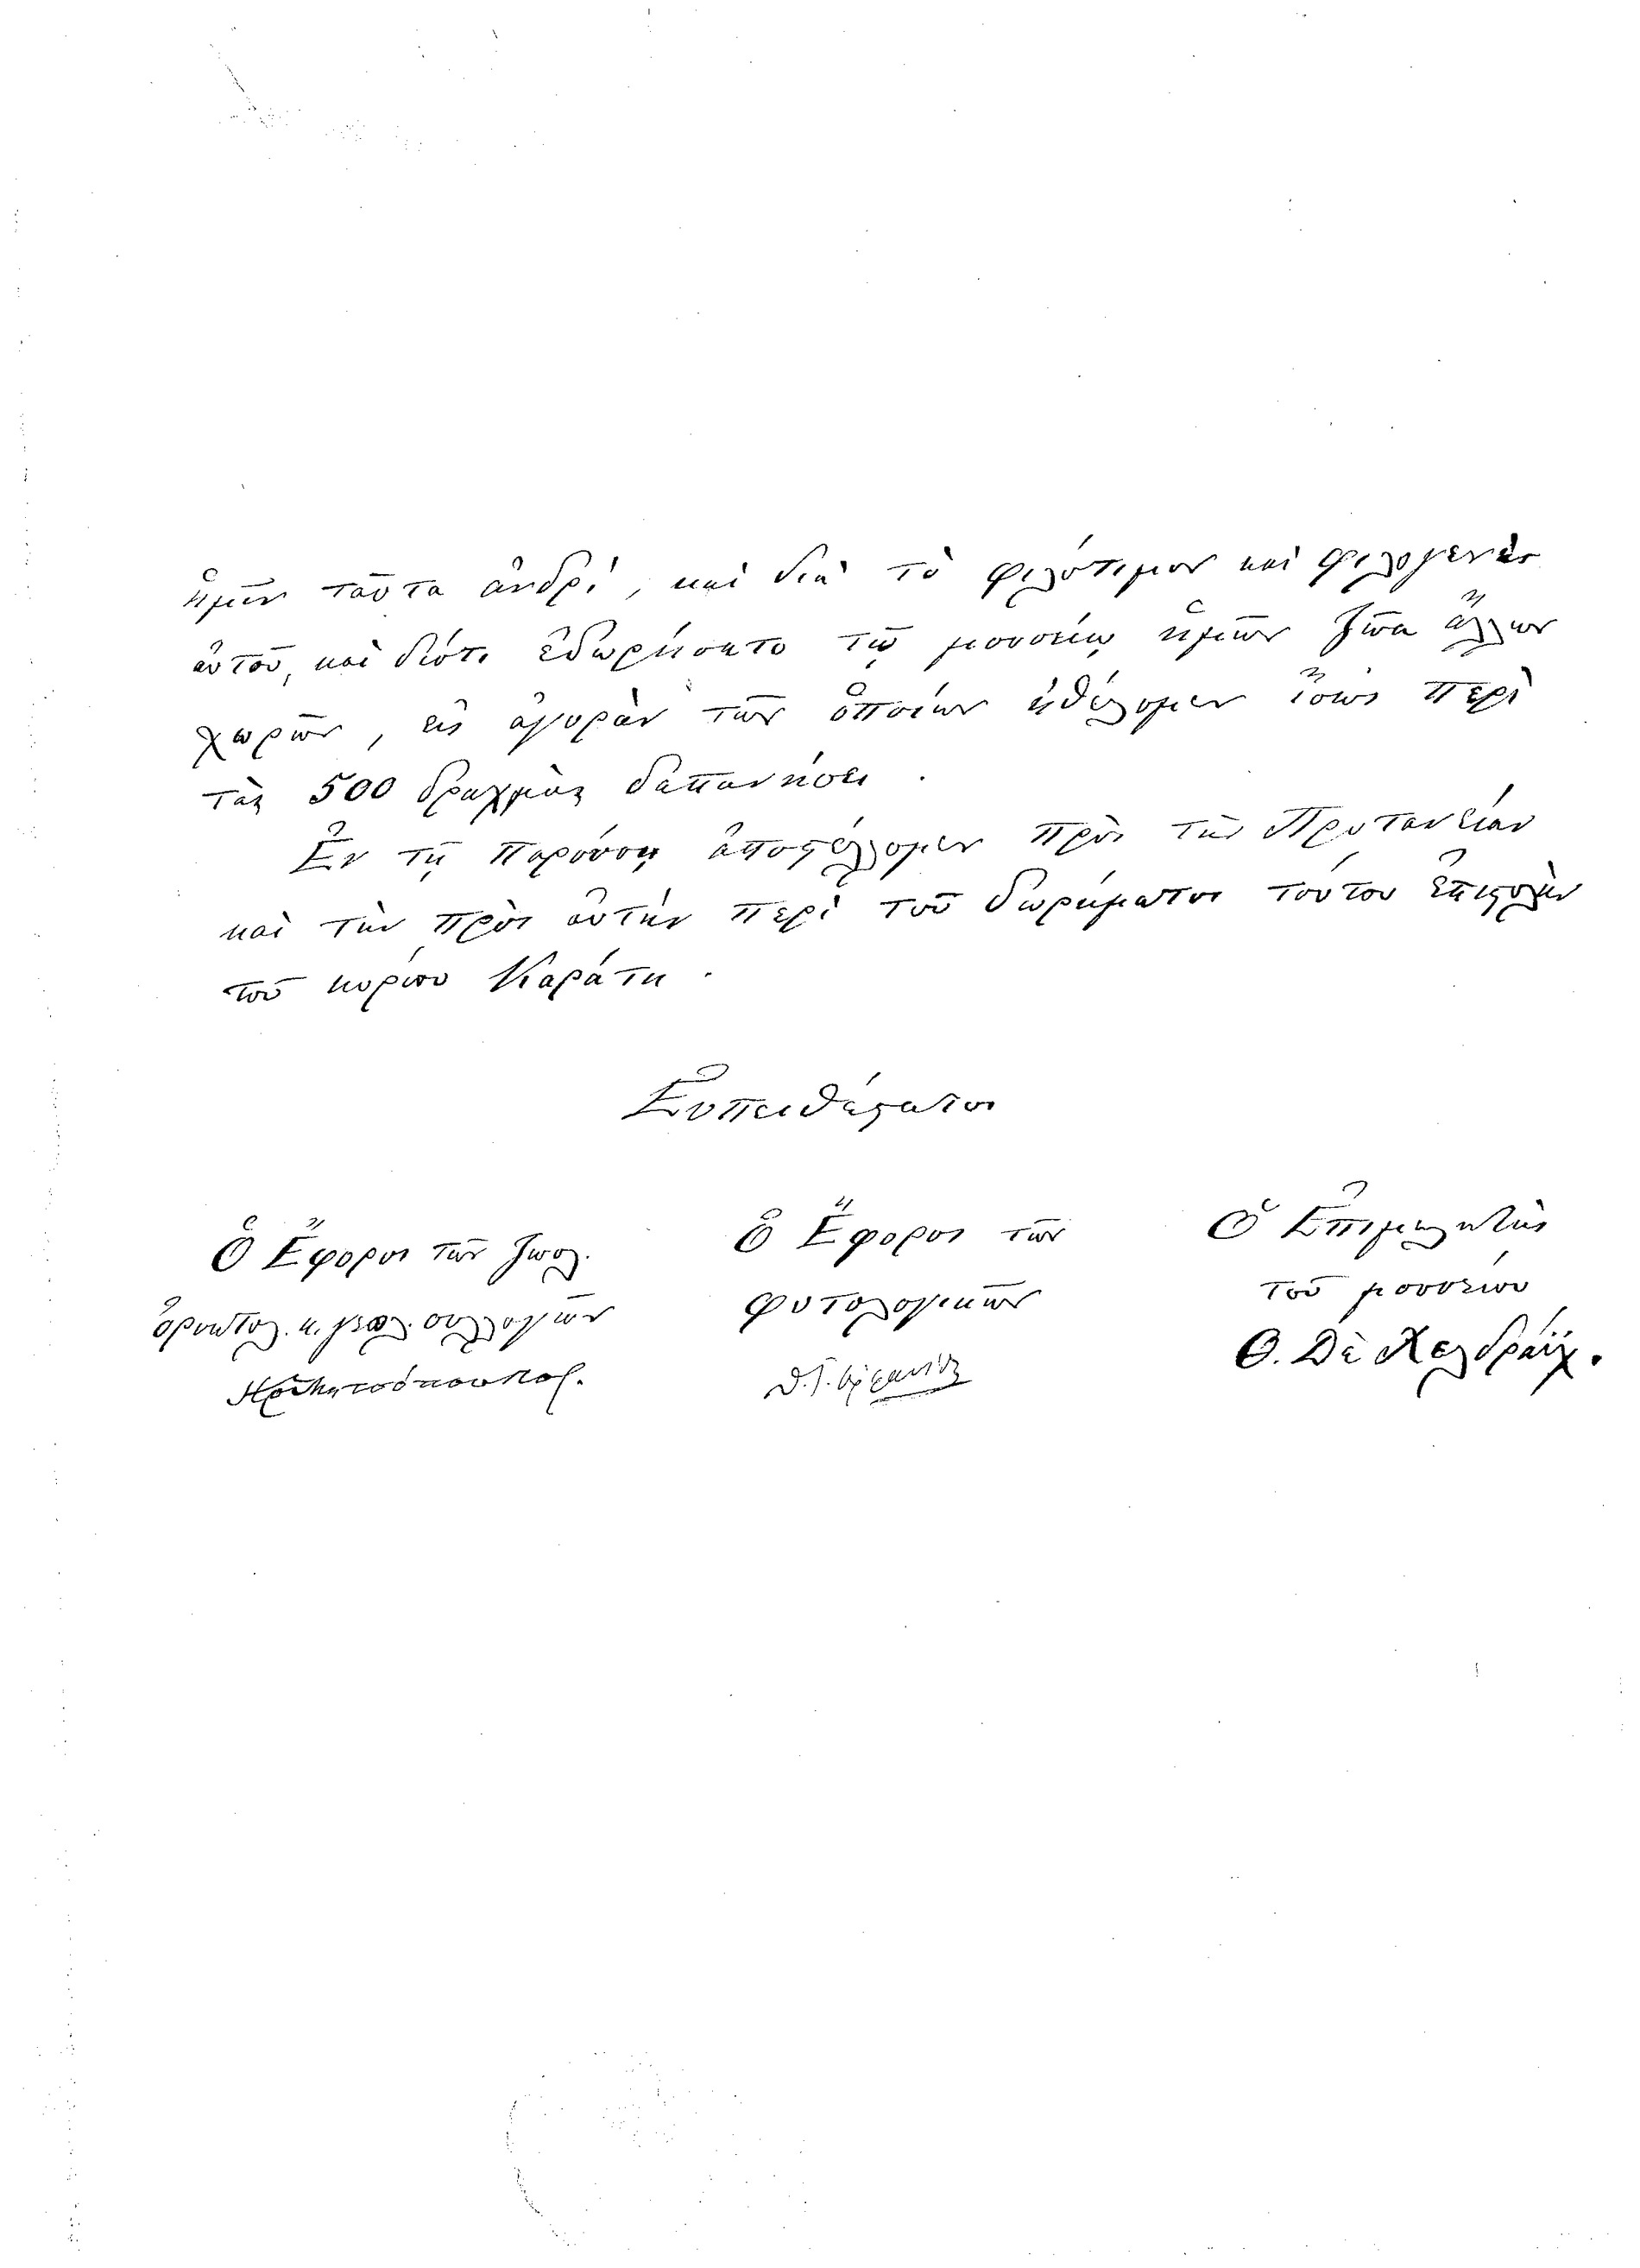 ἡμῖν ταῦτα ἀνδρί, καὶ διὰ τὸ φιλότιμον καὶ φιλογενὲς
αὐτοῦ, καὶ διότι ἐδωρήσατο τῷ μουσείῳ ἡμῶν ζῶα ἄλλων
χωρῶν, εἰς ἀγορὰν τῶν ὁποίων ἠθέλομεν ἴσως περὶ
τὰς 500 δραχμὰς δαπανήσει.
Ἐν τῇ παρούσῃ ἀποστέλλομεν πρὸς τὴν Πρυτανείαν
καὶ τὴν πρὸς αὐτὴν περὶ τοῦ δωρήματος τούτου ἐπιστολὴν
τοῦ κυρίου Καράτη.
Εὐπειθέστατοι
Ὁ Ἔφορος τῶν ζωολ.
ὀρυκτολ. κ. γεωλ. συλλογῶν
Ὁ Ἔφορος τῶν
φυτολογικῶν
Ὁ Ἐπιμελητὴς
τοῦ μουσείου
Θ. Δὲ Χελδράϊχ.